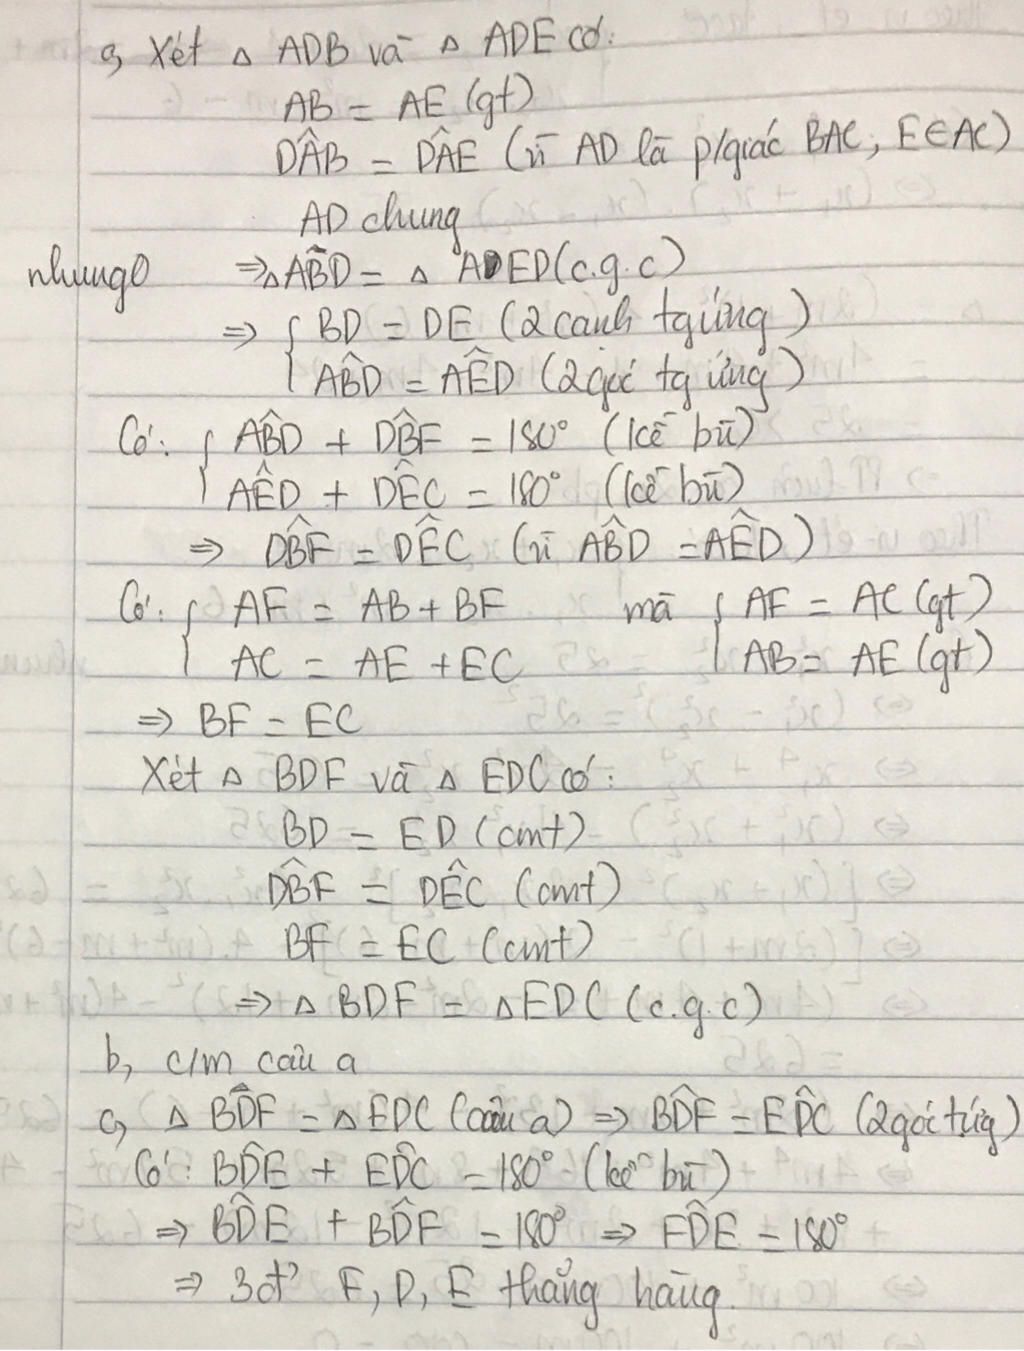 a, Xét Δ ADB và Δ ADE có:
AB = AE (gt)
DÂB = DÂE (vì AD là p/giác BAC, E∈AC)
AD chung
nhung0 ⇒ Δ ABD = Δ ADED (c.g.c)
⇒ { BD = DE (2 cạnh tg ứng)
AB̂D = AÊD (2 góc tg ứng)
Có: { AB̂D + DB̂F = 180° (kề bù)
AÊD + DÊC = 180° (kề bù)
⇒ DB̂F = DÊC (vì AB̂D = AÊD)
Có: { AF = AB + BF mà { AF = AC (gt)
AC = AE + EC AB = AE (gt)
⇒ BF = EC
Xét Δ BDF và Δ EDC có:
BD = ED (cmt)
DB̂F = DÊC (cmt)
BF = EC (cmt)
⇒ Δ BDF = Δ EDC (c.g.c)
b, c/m câu a
c, Δ BDF = Δ EDC (câu a) ⇒ BD̂F = ED̂C (2 góc tứg)
Có: BD̂E + ED̂C = 180° (kề bù)
⇒ BD̂E + BD̂F = 180° ⇒ FD̂E = 180°
⇒ 3 đ' F, D, E thẳng hàng.